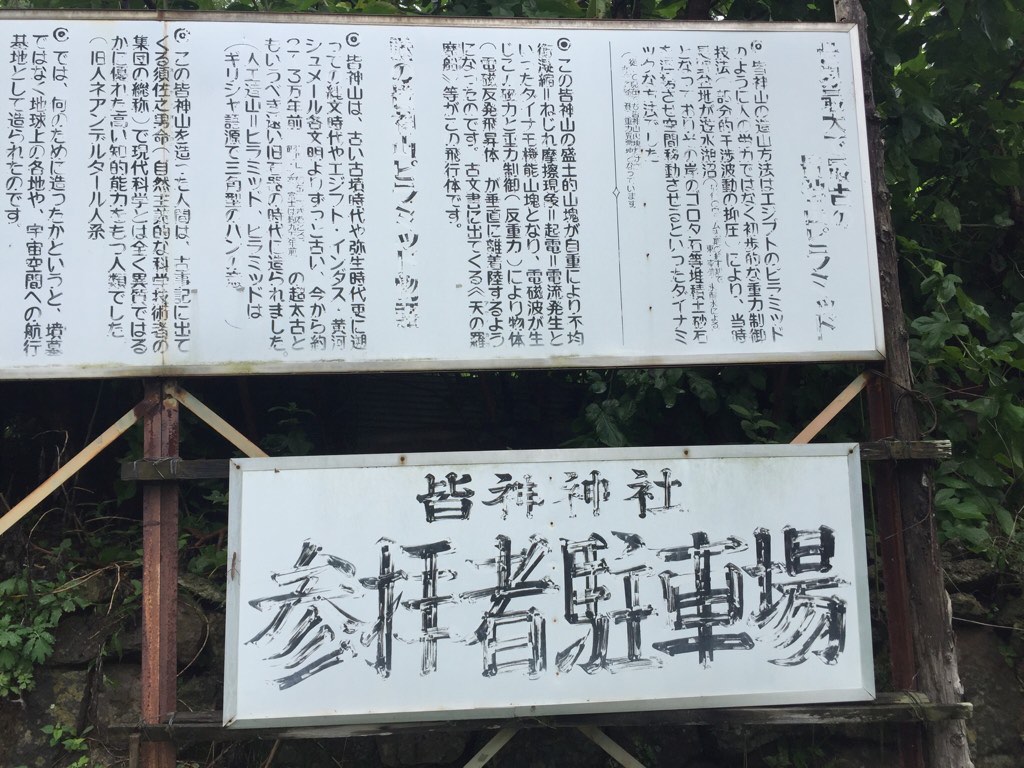 世界最大で最古の
皆神山ピラミッド
◉皆神山の造山方法はエジプトのピラミッド
のように人の労力ではなく初歩的な重力制御
技法(部分的干渉波動の抑圧)により、当時
長野盆地が
となっており
ックな方法でした
◉この皆神山の盛土的山塊が自重により不均
衡凝縮=ねじれ摩擦現象=起電=電流発生と
いったダイナモ機能山塊となり、電磁波が生
じ、強力な重力制御(反重力)により物体
(電磁反発飛昇体)が垂直に離着陸するよう
になったのです。古文書に出てくる《天の羅
摩船》等がこの飛行体です。
謎の皆神山ピラミッド物語
◉皆神山は、古い古墳時代や弥生時代更に遡
って縄文時代やエジプト・インダス・黄河
シュメール各文明よりずっと古い、今から約
二〜三万年前
の超太古と
もいうべき遠い旧石器の時代に造られました。
(人工造山=ピラミッド、ピラミッドは
ギリシャ語源で三角型のパン
◉この皆神山を造った人間は、古事記に出て
くる須佐之男命(自然主義的な科学技術者の
集団の総称)で現代科学とは全く異質ではる
かに優れた高い知的能力をもつ人類でした
(旧人ネアンデルタール人系
◉では、何のために造ったかというと、墳墓
ではなく地球上の各地や、宇宙空間への航行
基地として造られたのです。
皆神神社
参拝者駐車場